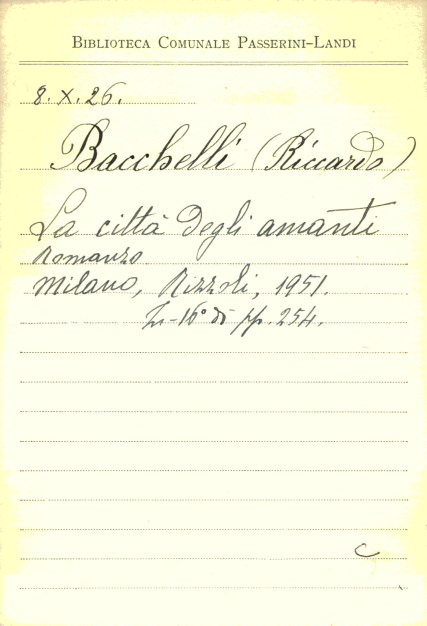 BIBLIOTECA COMUNALE PASSERINI-LANDI
8. X. 26.
Bacchelli (Riccardo)
La città degli amanti
Romanzo
Milano, Rizzoli, 1951.
In-16° di pp. 254.
C